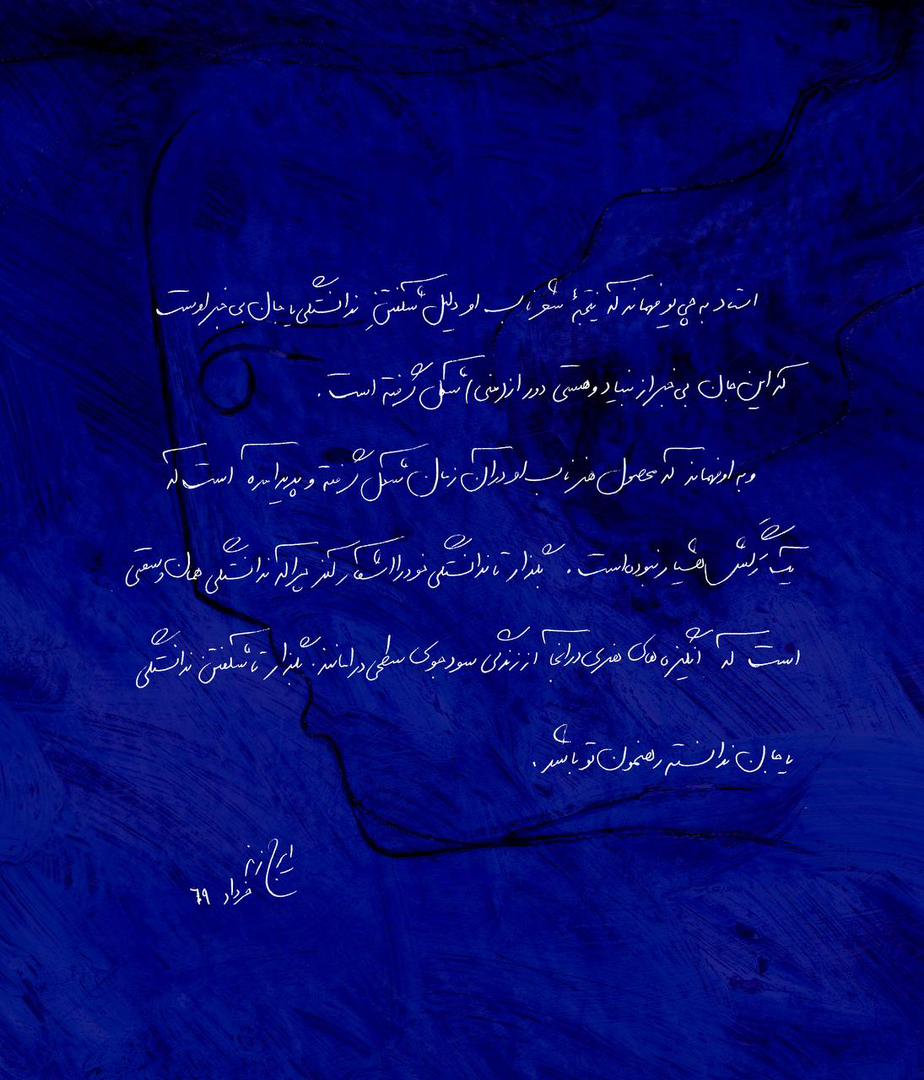 استاد به چی‌یو فهماند که نتیجهٔ شعر ناب او دلیل شکفتنِ ندانستگی یا جان بی‌خبر اوست
که این جان بی‌خبر از بنیاد و هستی دور از (منی) شکل گرفته است.
و به او فهماند که محصول هنر ناب او در آن زمان شکل گرفته و پدید آمده است که
یک تَرکش هشیار نبوده است. بگذار تا ندانستگی خود را آشکار کند چرا که ندانستگی همان وسعتی
است که انگیزه‌های هنری در آنجا از زندگی سودجوی سطحی در امانند. بگذار تا شکفتن ندانستگی
یا جان ندانسته رهنمون تو باشد.
ایرج زند
خرداد ۶۹